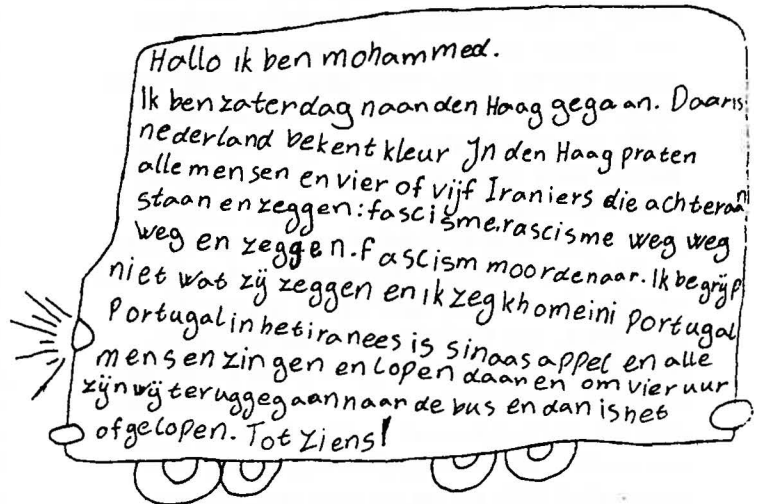 Hallo ik ben mohammed.
Ik ben zaterdag naan den Haag gegaan. Daar is
nederland bekent kleur In den Haag praten
alle mensen en vier of vijf Iraniers die achteraan
staan en zeggen: fascisme, rascisme weg weg
weg en zeggen. fascism moordenaar. Ik begrijp
niet wat zij zeggen en ik zeg khomeini portugal
Portugal in het iranees is sinaasappel en alle
mensen zingen en lopen daar en om vier uur
zijn wij teruggegaan naar de bus en dan is het
afgelopen. Tot Ziens!